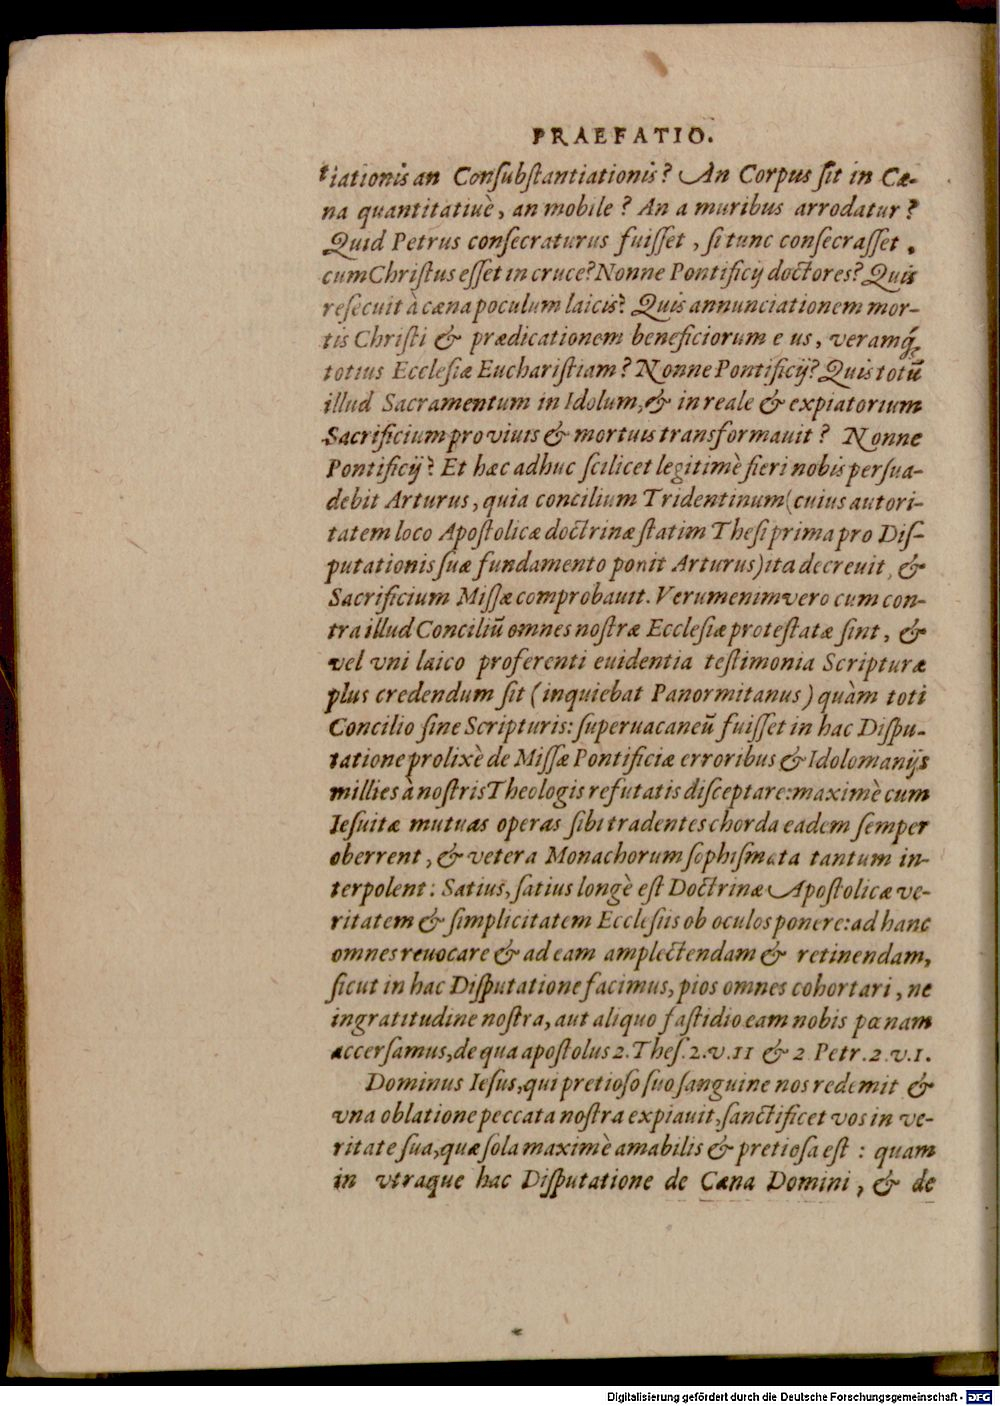 PRAEFATIO.
tiationis an Conſubſtantiationis? An Corpus ſit in Cæ-
na quantitatiuè, an mobile? An a muribus arrodatur?
Quid Petrus conſecraturus fuiſſet, ſi tunc conſecraſſet,
cum Chriſtus eſſet in cruce? Nonne Pontificij doctores? Quis
reſecuit à cæna poculum laicis? Quis annunciationem mor-
tis Chriſti & prædicationem beneficiorum e us, veramq́;
totius Eccleſiæ Euchariſtiam? Nonne Pontificij? Quis totũ
illud Sacramentum in Idolum, & in reale & expiatorium
Sacrificium pro viuis & mortuis transformauit? Nonne
Pontificij? Et hæc adhuc ſcilicet legitimè fieri nobis perſua-
debit Arturus, quia concilium Tridentinum (cuius autori-
tatem loco Apoſtolicæ doctrinæ ſtatim Theſi prima pro Diſ-
putationis ſuæ fundamento ponit Arturus) ita decreuit, &
Sacrificium Miſſæ comprobauit. Verumenimvero cum con-
tra illud Conciliũ omnes noſtræ Eccleſiæ proteſtatæ ſint, &
vel vni laico proferenti euidentia teſtimonia Scripturæ
plus credendum ſit (inquiebat Panormitanus) quàm toti
Concilio ſine Scripturis: ſuperuacaneũ fuiſſet in hac Diſpu-
tatione prolixè de Miſſæ Pontificiæ erroribus & Idolomanijs
millies à noſtris Theologis refutatis diſceptare: maximè cum
Ieſuitæ mutuas operas ſibi tradentes chorda eadem ſemper
oberrent, & vetera Monachorum ſophiſmata tantum in-
terpolent: Satius, ſatius longè eſt Doctrinæ Apoſtolicæ ve-
ritatem & ſimplicitatem Eccleſiis ob oculos ponere: ad hanc
omnes reuocare & ad eam amplectendam & retinendam,
ſicut in hac Diſputatione facimus, pios omnes cohortari, ne
ingratitudine noſtra, aut aliquo faſtidio eam nobis pœnam
accerſamus, de qua apoſtolus 2. Theſ. 2. v. 11 & 2 Petr. 2. v. 1.
Dominus Ieſus, qui pretioſo ſuo ſanguine nos redemit &
vna oblatione peccata noſtra expiauit, ſanctificet vos in ve-
ritate ſua, quæ ſola maximè amabilis & pretioſa eſt: quam
in vtraque hac Diſputatione de Cæna Domini, & de
Digitalisierung gefördert durch die Deutsche Forschungsgemeinschaft - DFG